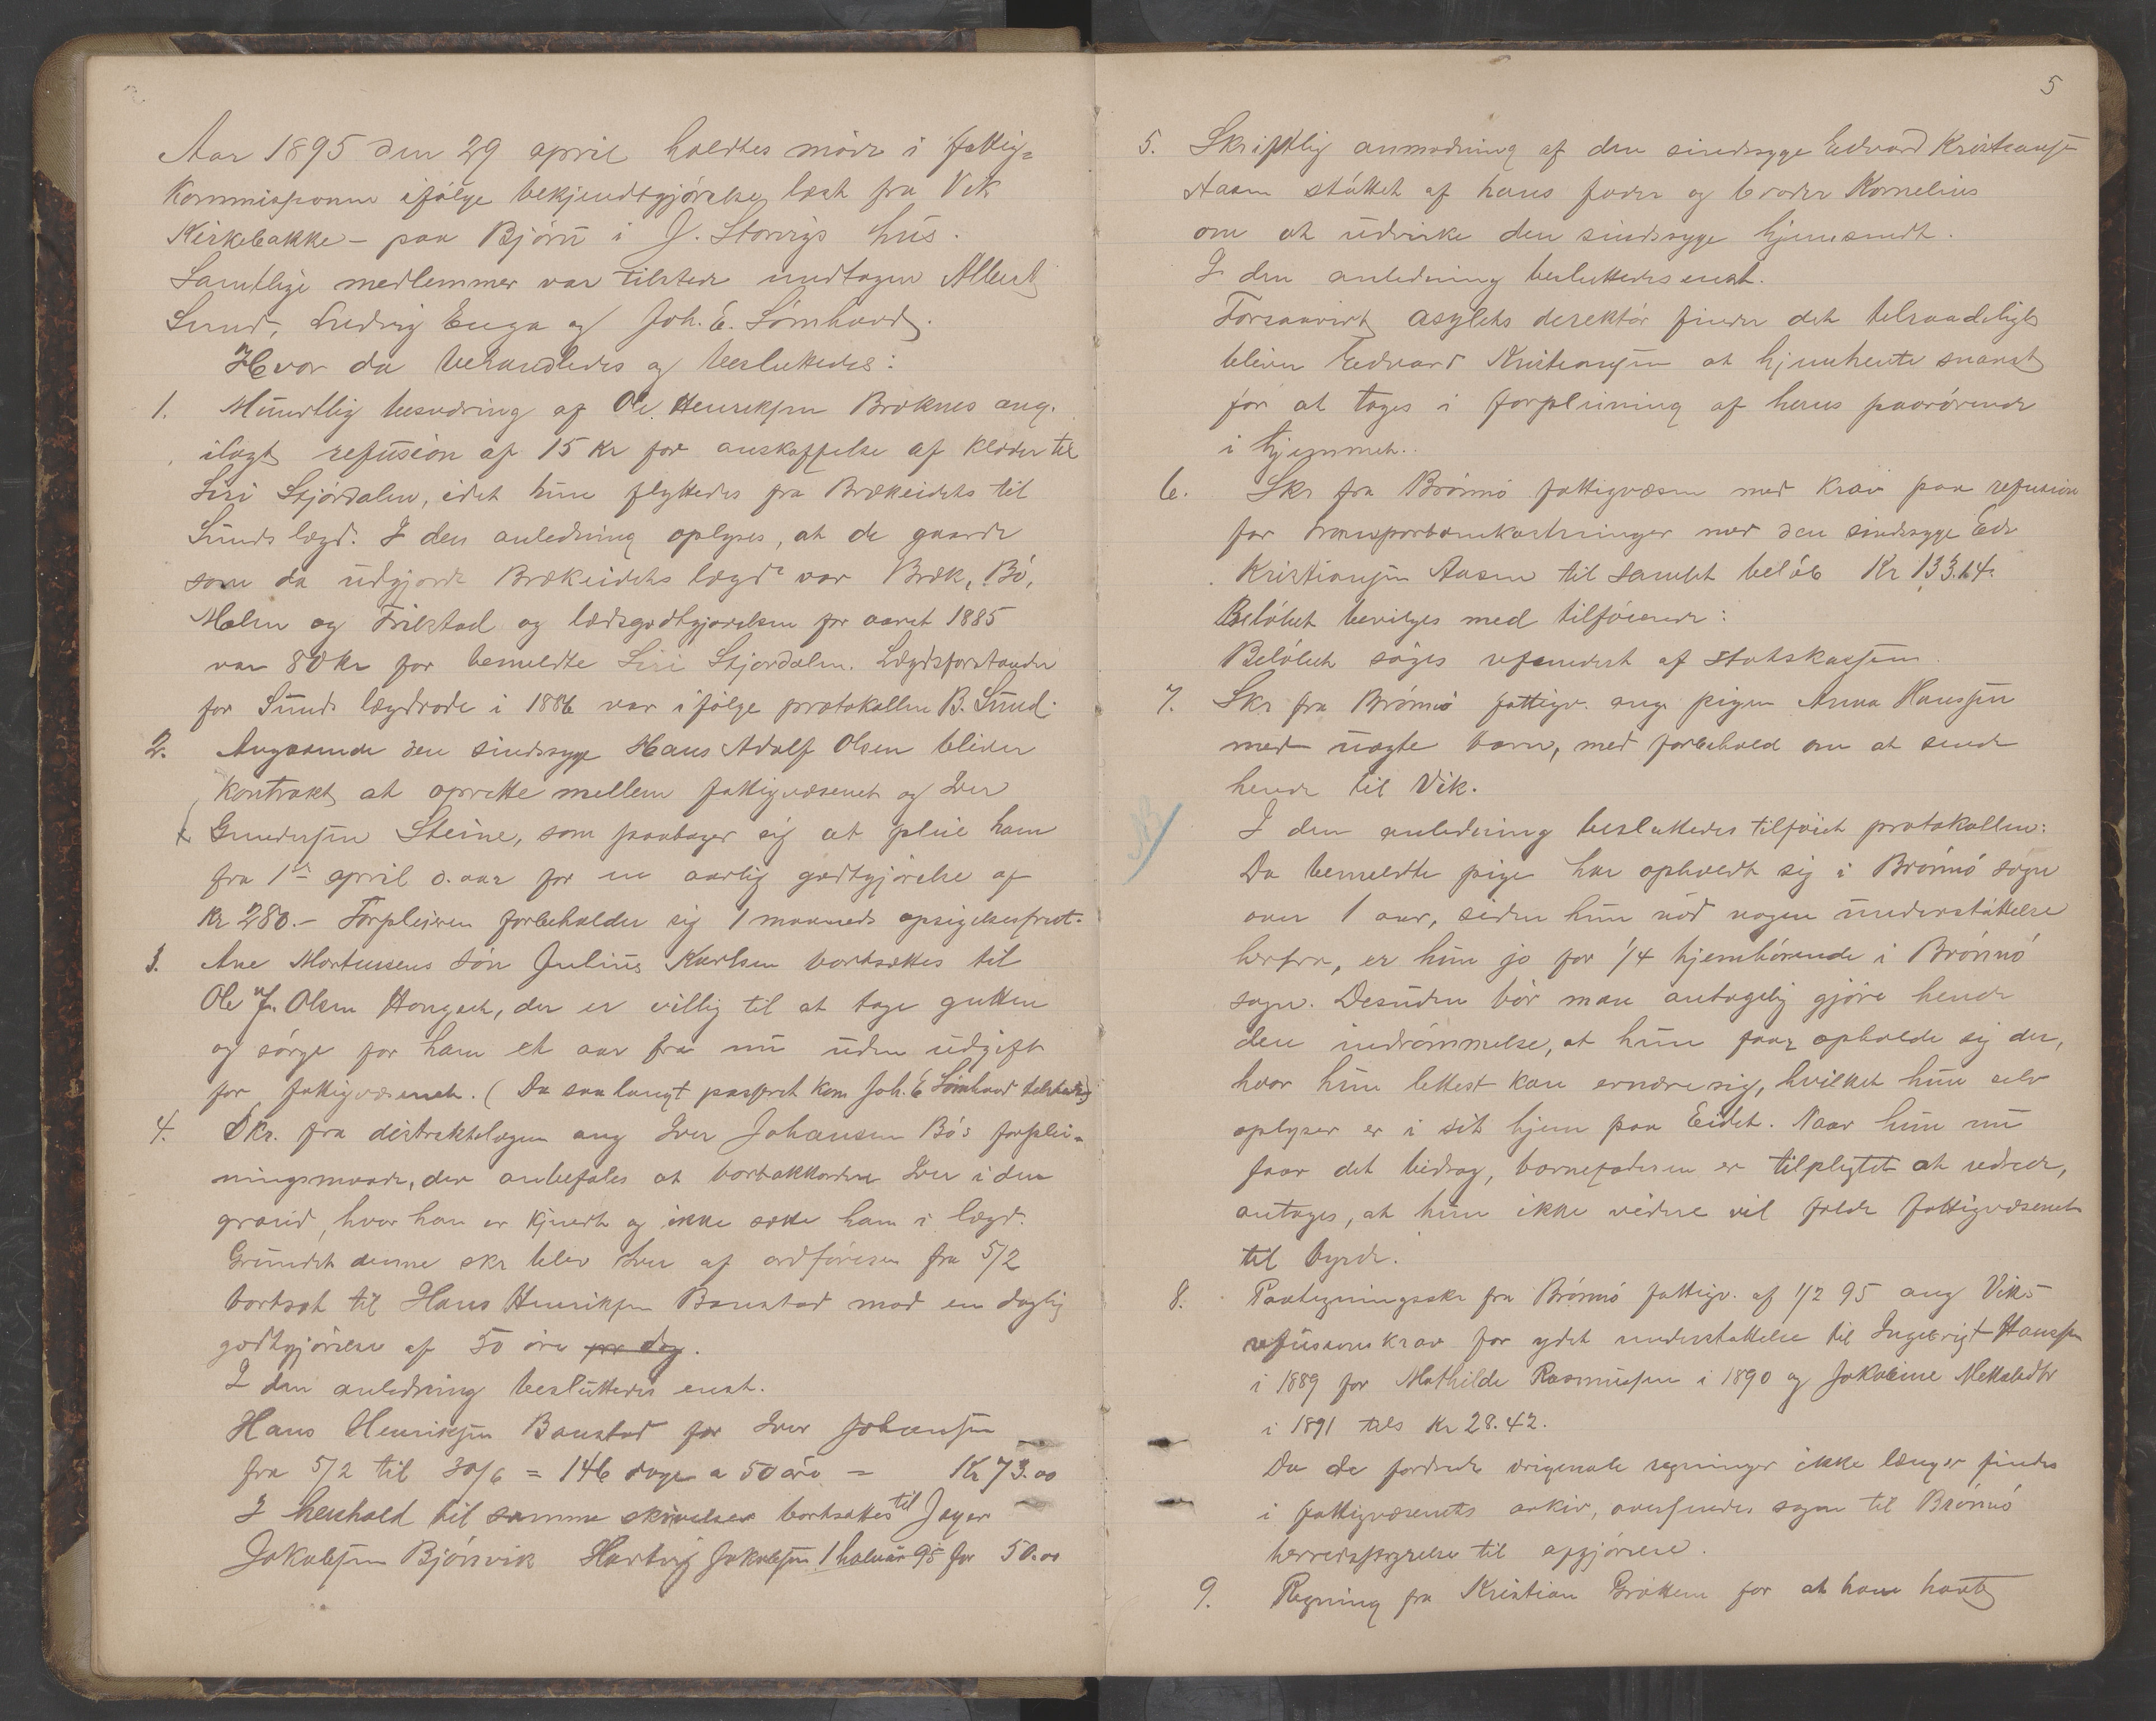 Aar 1895 den 29 april holdtes möde i fattig-
kommissionen ifölge bekjendtgjörelse læst fra Vik
Kirkebakke - paa Björn i J. Storvigs hus.
Samtlige medlemmer var tilstede undtagen Albert
Sund, Ludvig Enga og Joh. E. Sömhovd.
Hvor da behandledes og besluttedes:
1. Mundtlig besvdring af Ole Henriksen Bræknes ang.
ilagt refusion af 15 Kr for anskaffelse af klæder til
Siri Stjördalen, idet hun flyttedes fra Brækeidets til
Sunds lægd. I den anledning oplyses, at de gaarde
som da udgjorde Brækeidets lægd var Bræk, Bö,
Holm og Trælstad og lædsgodtgjörelsen for aaret 1885
var 80 kr for bemeldte Siri Stjördalen. Lægdsforstander
for Sunds lægdrode i 1886 var ifölge protokollen B. Sund.
2. Angaaende den sindssyge Hans Adolf Olsen bliver
kontrakt at oprette mellem fattigvæsenet og Iver
Gundersen Steine, som paatager sig at pleie ham
fra 1ste april d. aar for en aarlig godtgjörelse af
Kr 280.- Forpleieren forbeholder sig 1 maaneds opsigelsesfrist.
3. Ane Mortensens sön Julius Karlsen bortsættes til
Ole J. Olsen Hongset, der er villig til at tage gutten
og sörge for ham et aar fra nu uden udgift
for fattigvæsenet. (Da saa langt passeret kom Joh. E Sömhovd tilstede)
4. Skr. fra distriktslægen ang Iver Johansen Bö's forplei-
ningsmaade, der anbefales at bortakkordere Iver i den
grænd, hvor han er kjendt og ikke sætte ham i lægd.
Grundet denne skr blev Iver af ordföreren fra 5/2
bortsat til Hans Henriksen Baustad mod en daglig
godtgjörelse af 50 öre pr dag.
I den anledning besluttedes enst.
Hans Henriksen Baustad for Iver Johansen
fra 5/2 til 30/6 = 146 dage a 50 öre = Kr 73.00
I henhold til samme skrivelse bortsattes til Jager
Jakobsen Björnvik Hartvig Jakobsen 1 halvaar 95 for 50.00
5
5. Skriftlig anmodning af den sindssyge Edvard Kristiansen
Aasen støttet af hans fader og broder Kornelius
om at udvirke den sindssyge hjemsendt.
I den anledning besluttedes enst.
Forsaavidt asylets direktör finder det tilraadeligt
bliver Edvard Kristiansen at hjemhente snarest
for at tages i forpleining af hans paarörende
i hjemmet.
6. Skr fra Brönnö fattigvæsen med krav paa refusion
for transportomkostninger med den sindssyge Edv
Kristiansen Aasen til samlet belöb Kr 133.14.
Belöbet bevilges med tilföiende:
Belöbet söges refunderet af Statskassen.
7. Skr fra Brönnö fattigv. ang pigen Anna Hanssen
med uægte barn, med forbehold om at sende
hende til Vik.
I den anledning besluttedes tilföiet protokollen:
Da bemeldte pige har opholdt sig i Brönnö sogn
over 1 aar, siden hun nöd nogen understöttelse
herfra, er hun jo for 1/4 hjemhörende i Brönnö
sogn. Desuden bör man antagelig gjöre hende
den indrömmelse, at hun faar opholde sig der,
hvor hun lettest kan ernære sig, hvilket hun selv
oplyser er i sit hjem paa Eidet. Naar hun nu
faar det bidrag, barnefaderen er tilpligtet at udrede,
antages, at hun ikke videre vil falde fattigvæsenet
til byrde.
8. Paategningsskr fra Brönnö fattigv. af 1/2 95 ang Vik's
refusionskrav for ydet understöttelse til Ingebrigt Hanssen
i 1889 for Mathilde Rasmussen i 1890 og Jakobine
i 1891 tils Kr 28.42.
Da de fordrede originale regninger ikke længer findes
i fattigvæsenets arkiv, oversendes sagen til Brönnö
herredsstyrelse til afgjörelse.
9. Regning fra Kristian Gröttem for at have havt